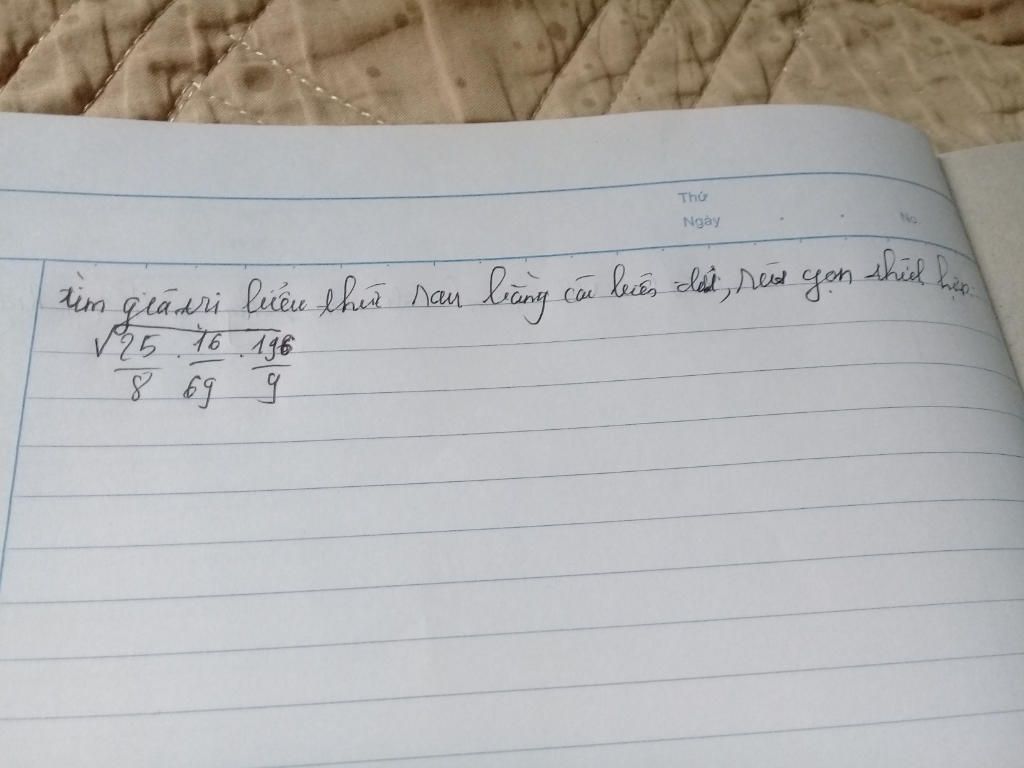 Thứ
Ngày . . No.
tìm giá trị biểu thức sau bằng các biến đổi, rút gọn thích hợp.
√25/8 . 16/69 . 196/9